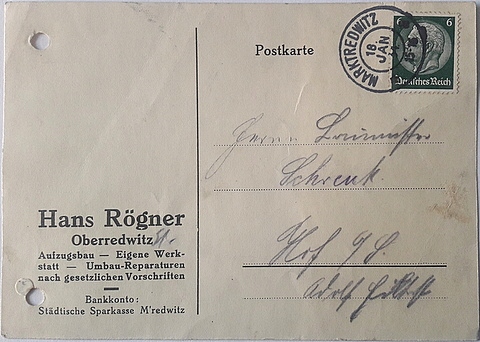 Postkarte
MARKTREDWITZ
18.
JAN
6 6
Deutsches Reich
Herrn Baumeister
Schrenk.
Hof a/S.
Adolf
Hans Rögner
Oberredwitz
Aufzugsbau — Eigene Werk-
statt — Umbau-Reparaturen
nach gesetzlichen Vorschriften
Bankkonto:
Städtische Sparkasse M'redwitz